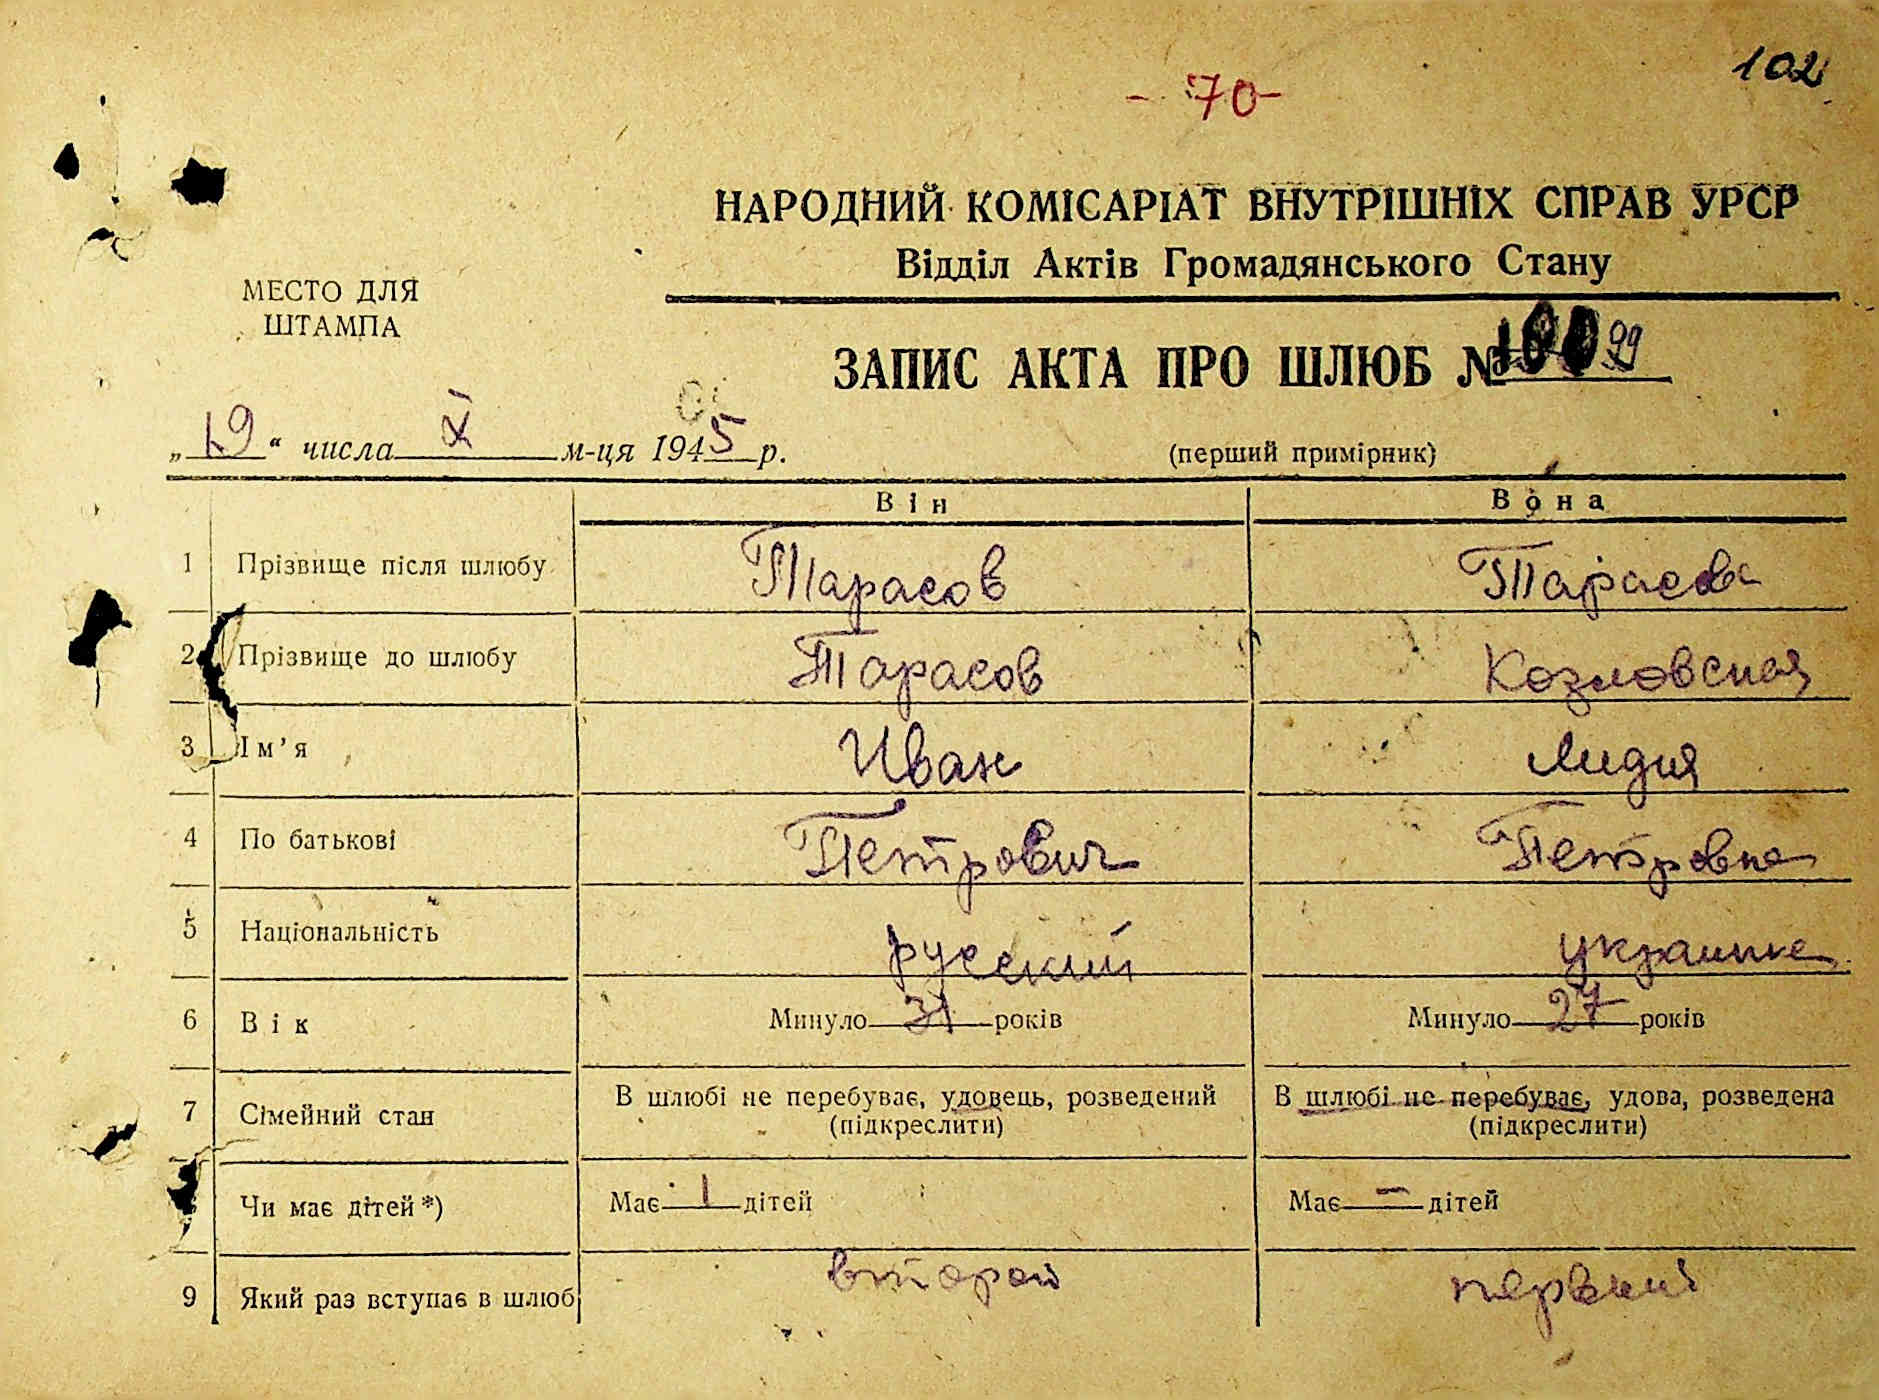 102
- 70 -
НАРОДНИЙ КОМІСАРІАТ ВНУТРІШНІХ СПРАВ УРСР
Відділ Актів Громадянського Стану
МЕСТО ДЛЯ
ШТАМПА
ЗАПИС АКТА ПРО ШЛЮБ № 99
„19“ числа X м-ця 1945 р.
(перший примірник)
Він Вона
1 Прізвище після шлюбу Тарасов Тарасова
2 Прізвище до шлюбу Тарасов Козловская
3 Ім’я Иван Лидия
4 По батькові Петрович Петровна
5 Національність русский украинка
6 Вік Минуло 31 років Минуло 27 років
7 Сімейний стан В шлюбі не перебуває, удовець, розведений В шлюбі не перебуває, удова, розведена
(підкреслити) (підкреслити)
Чи має дітей *) Має 1 дітей Має - дітей
9 Який раз вступає в шлюб второй первый